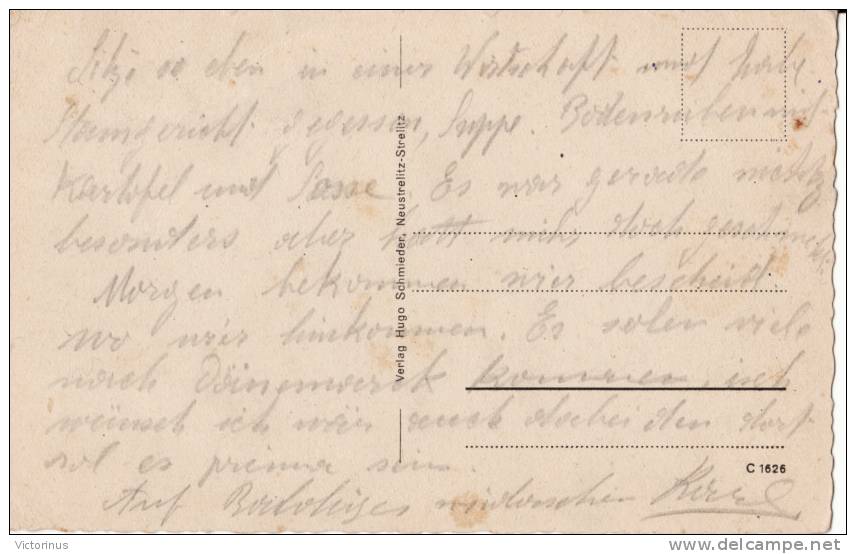 Sitze so eben in einer Wirtschaft und habe
Stamgericht gegessen, Suppe. Bodenruben mit
Kartofel und Sosse. Es war gerade nichtz
besonders aber hatt mihr doch geschmekt.
Morgen bekommen wier bescheid.
wo wier hinkommen. Es solen viele
nach Dänemarck kommen, ich
wünsch ich wär auch dabei den dort
sol es prima sein.
Auf Baldiges widersehen
Verlag Hugo Schmieder, Neustrelitz-Strelitz
C 1626
Victorinus
delcampe.net